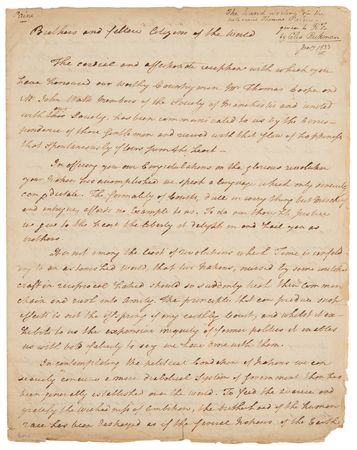 Paine
The hand writing of the
notorious Thomas Paine
given to
by Clio Rickman
1833
Brothers and fellow Citizens of the World
The cordial and affectionate reception with which you
have honoured our worthy Countrymen Mr Thomas Cooper and
Mr John Watt members of the Society of Manchester and united
with this Society, has been communicated to us by the Corres-
pondence of those Gentlemen and received with that glow of happiness
that spontaneously flows from the heart —
In offering you our Congratulations on the glorious revolution
your Nation has accomplished we speak a language which only sincerity
can dictate. The formality of Courts, dull in every thing but mischief
and intrigue affords no example to us. To do our thoughts justice
we give to the heart the liberty it delights in and hail you as
brothers.
It is not among the least of revolutions which Time is unfold-
ing to an astonished world, that two Nations, nursed by some wretched
craft in reciprocal hatred should so suddenly break their common
chain and rush into Amity. The principle that can produce such
effects is not the offspring of any earthly Court, and whilst it ex-
hibits to us the expensive iniquity of former politics it enables
us with bold felicity to say we have done with them.
In contemplating the political Condition of Nations we can
scarcely conceive a more diabolical System of Government than has
been generally established over the World. To feed the avarice and
gratify the wickedness of Ambition, the brotherhood of the human
race has been destroyed as if the several Nations of the Earth